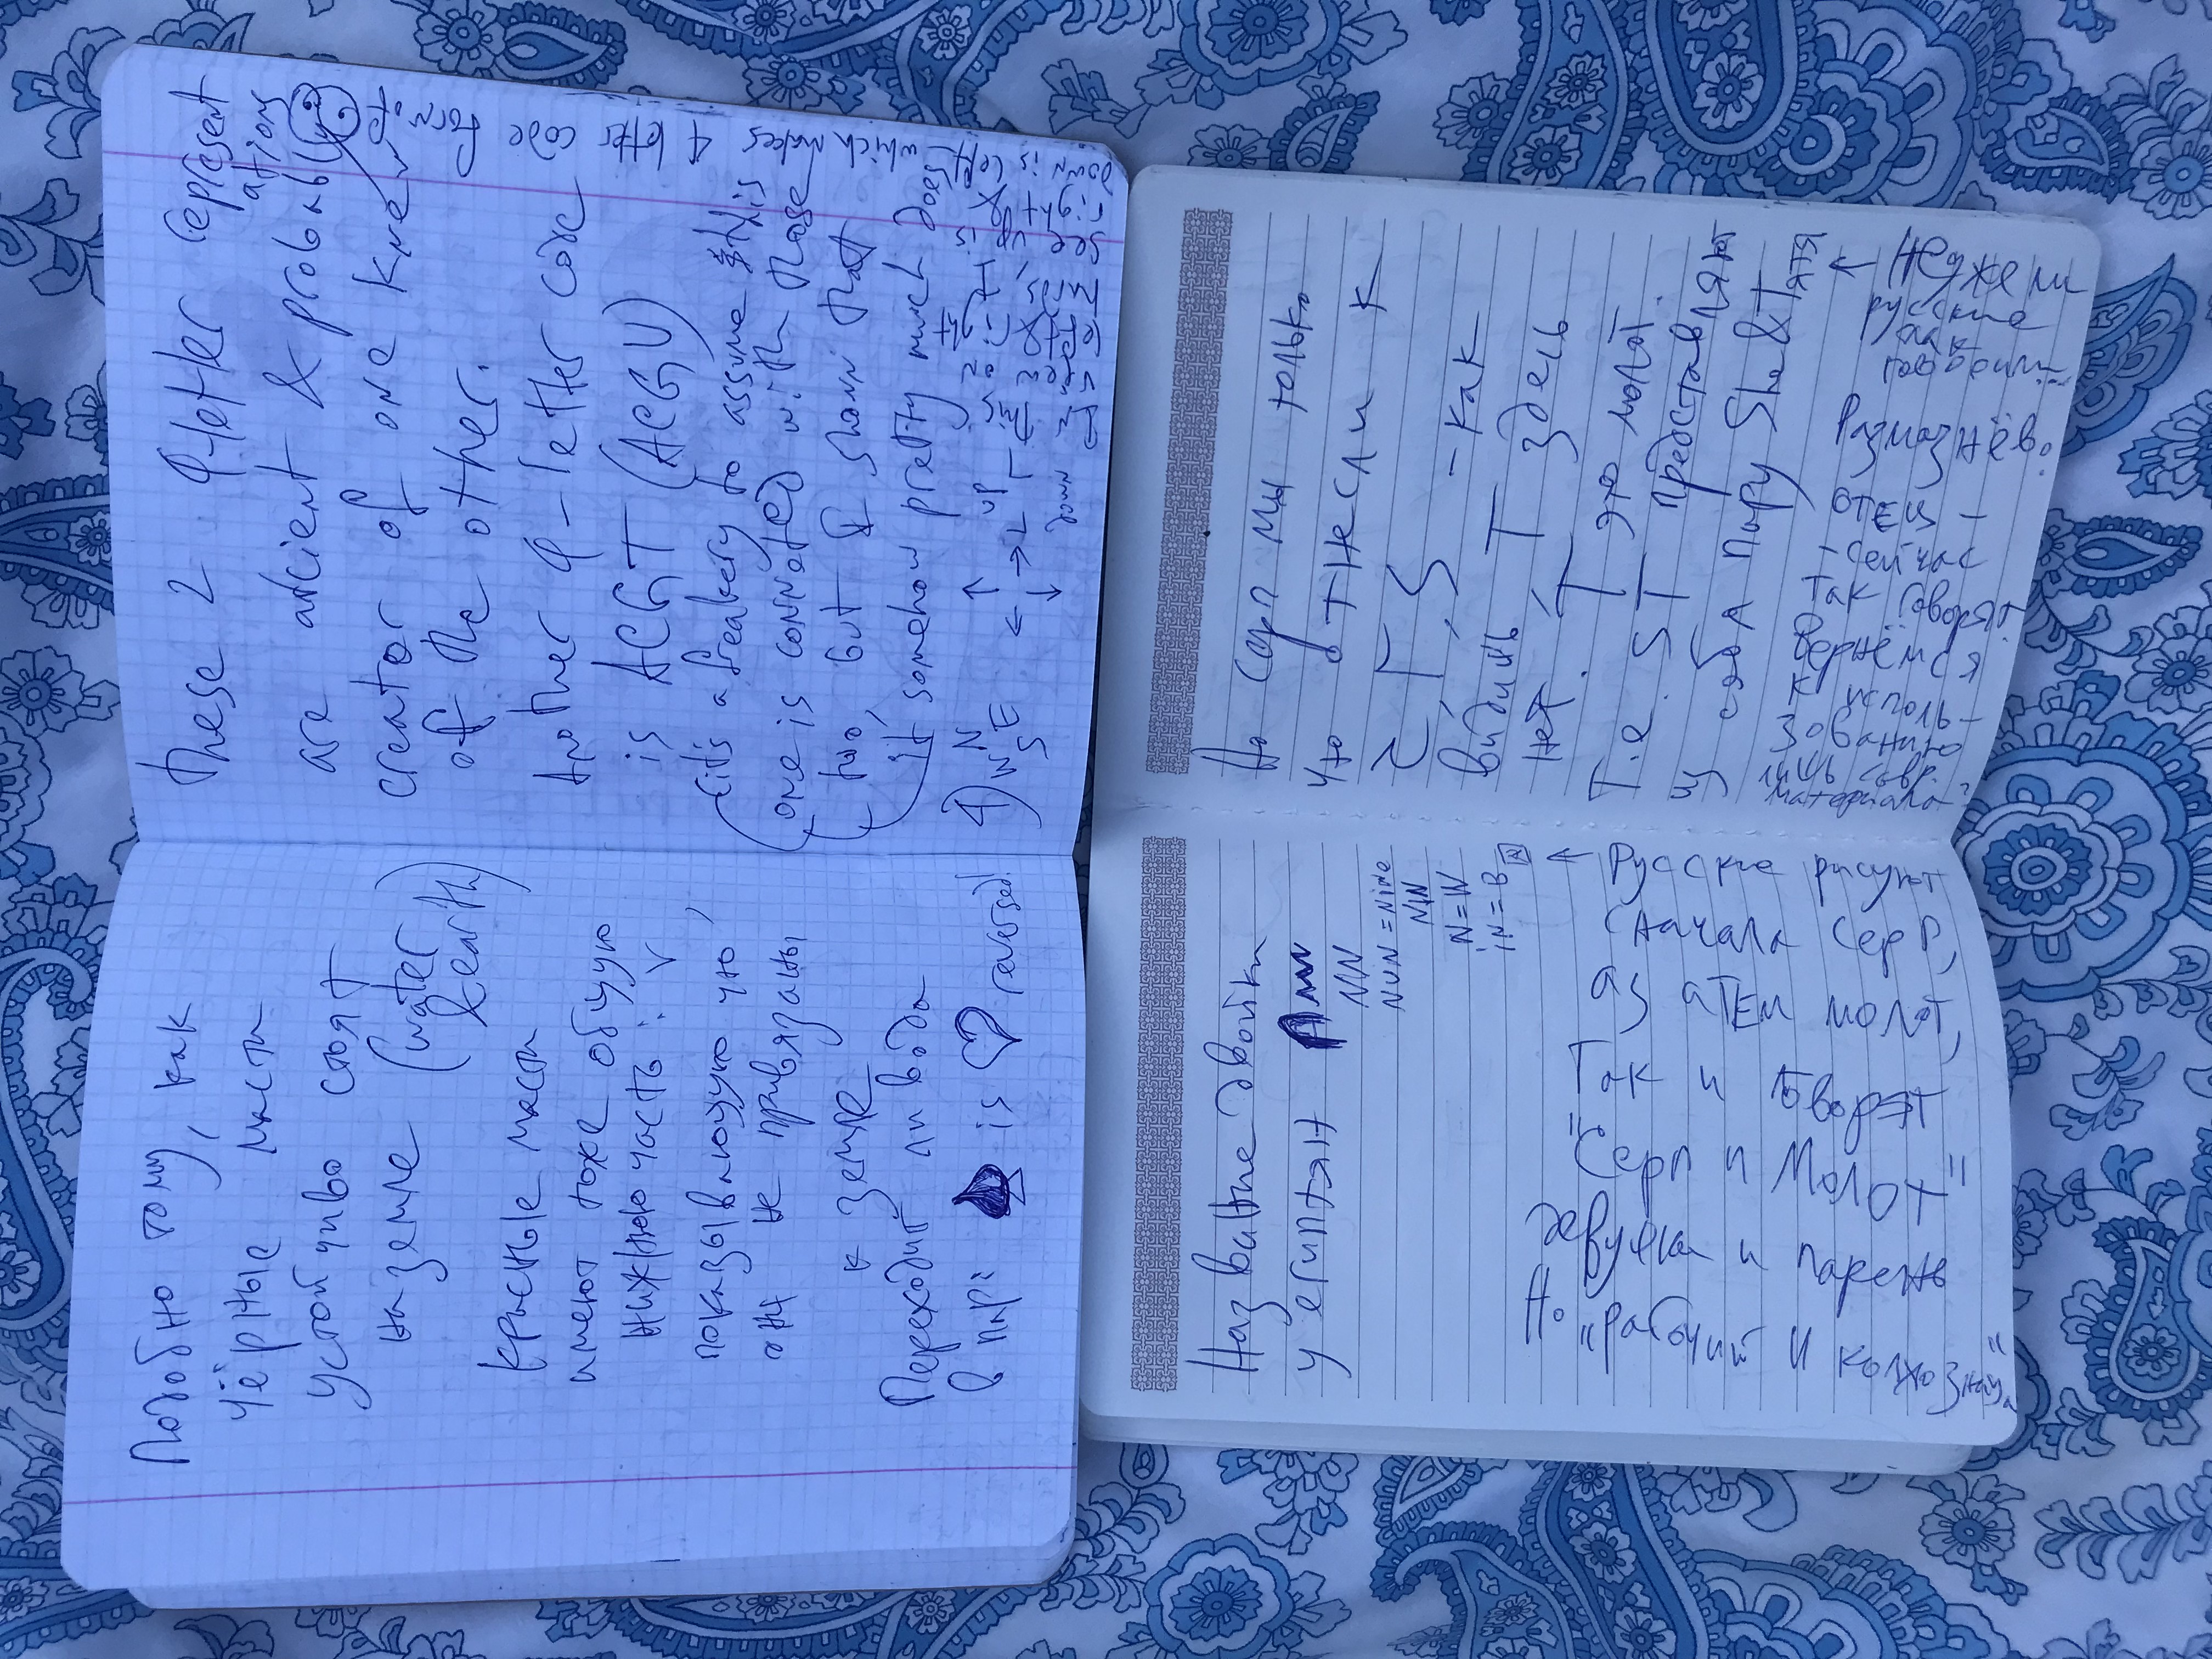 Подобно тому, как
чёрные масти
устойчиво стоят
на земле (water
& earth)
красные масти
имеют тоже общую
нижнюю часть: v,
показывающую что
они не привязаны
к земле
Переходит ли вода
в пар?
is
reversed!
These 2 4-letter represent
ations
are ancient & probably
creator of one knew
of the other.
Another 4-letter code
is ACGT (ACGU)
(it's a freakery to assume this
one is connected with those
two, but I shown that
it somehow pretty much does
4) N
W E
S
↑
← →
↓
UP
L Γ
down
In this
view on
left & right
hands, I
see up is
right &
down is left – which makes 4 letter code form of
Название двойки
у египтян
NN
NUN = Nine
N = W
iN = B
← Русские рисуют
сначала серп,
а затем молот,
Так и говорят
"Серп и Молот"
девушка и парень
Но "Рабочий и колхозница"
Но серп мы только
что отнесли к
C, Γ, S – как
видишь, T здесь
нет. T это молот.
Т.е. ST представляют
из себя пару She & Тятя
← Неужели
русские
так
говорили
отец –
– сейчас
так говорят.
Вернёмся
к